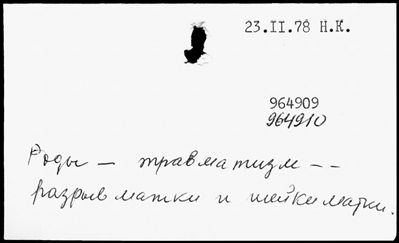 23.II.78 Н.К.
964909
964910
Роды — травматизм --
разрыв матки и шейки матки.